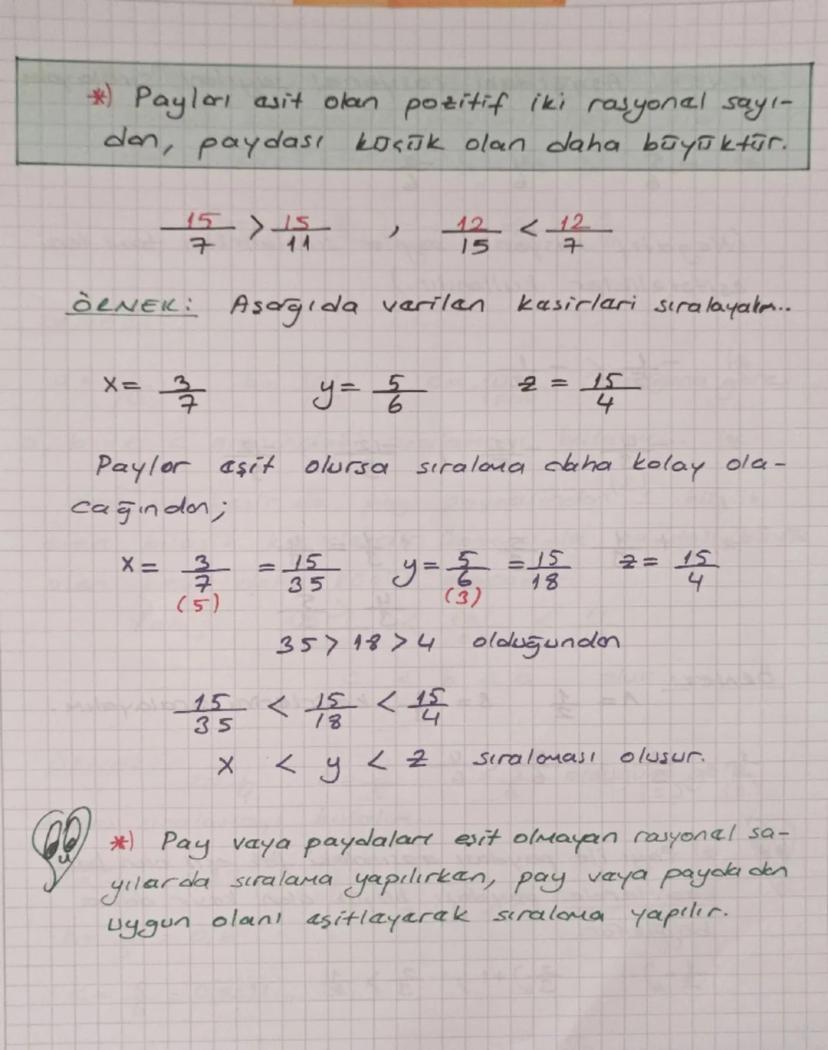 *) Payları eşit olan pozitif iki rasyonel sayı-
dan, paydası küçük olan daha büyüktür.
15/7 > 15/11 , 12/15 < 12/7
ÖRNEK: Aşağıda verilen kesirleri sıralayalım..
x = 3/7 y = 5/6 z = 15/4
Paylar eşit olursa sıralama daha kolay ola-
cağından;
x = 3/7 = 15/35 y = 5/6 = 15/18 z = 15/4
(5) (3)
35 > 18 > 4 olduğundan
15/35 < 15/18 < 15/4
x < y < z sıralaması oluşur.
*) Pay veya paydaları eşit olmayan rasyonel sa-
yılarda sıralama yapılırken, pay veya paydadan
uygun olanı eşitleyerek sıralama yapılır.